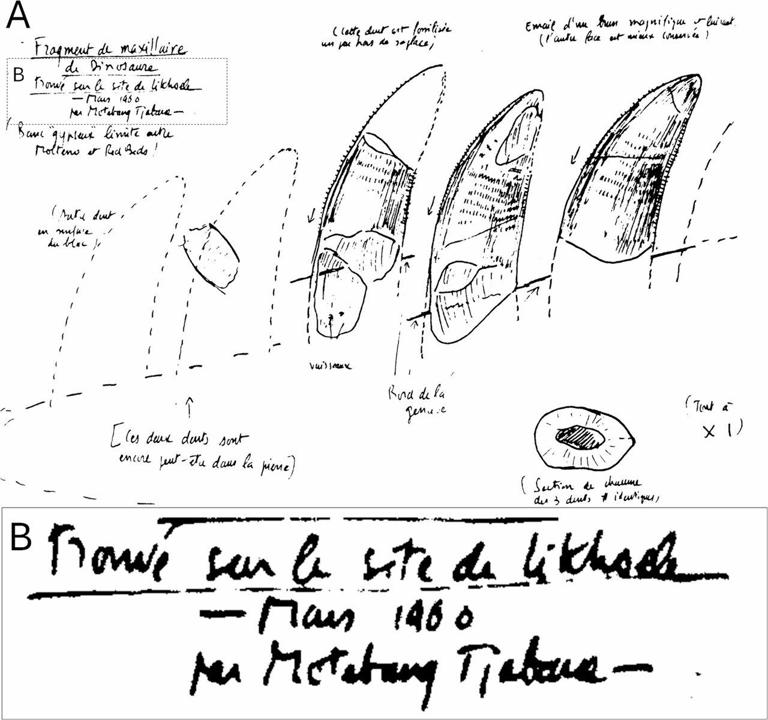 A
Fragment de maxillaire
de Dinosaure
B
Trouvé sur le site de Likhoele
— Mars 1960
par Motebang Tjabana —
(Banc "gypseux" limite entre
Molteno et Red Beds!
(Cette dent est fossilisée
un peu hors de sa place)
Email d'un brun magnifique et luisant
(l'autre face est mieux conservée)
(Autre dent
en surface
du bloc)
vaisseaux
Bord de la
gencive
[Ces deux dents sont
encore peut-être dans la pierre)
(Tout à
X 1)
(Section de chacune
des 3 dents # identiques)
B
Trouvé sur le site de Likhoele
— Mars 1960
par Motebang Tjabana —